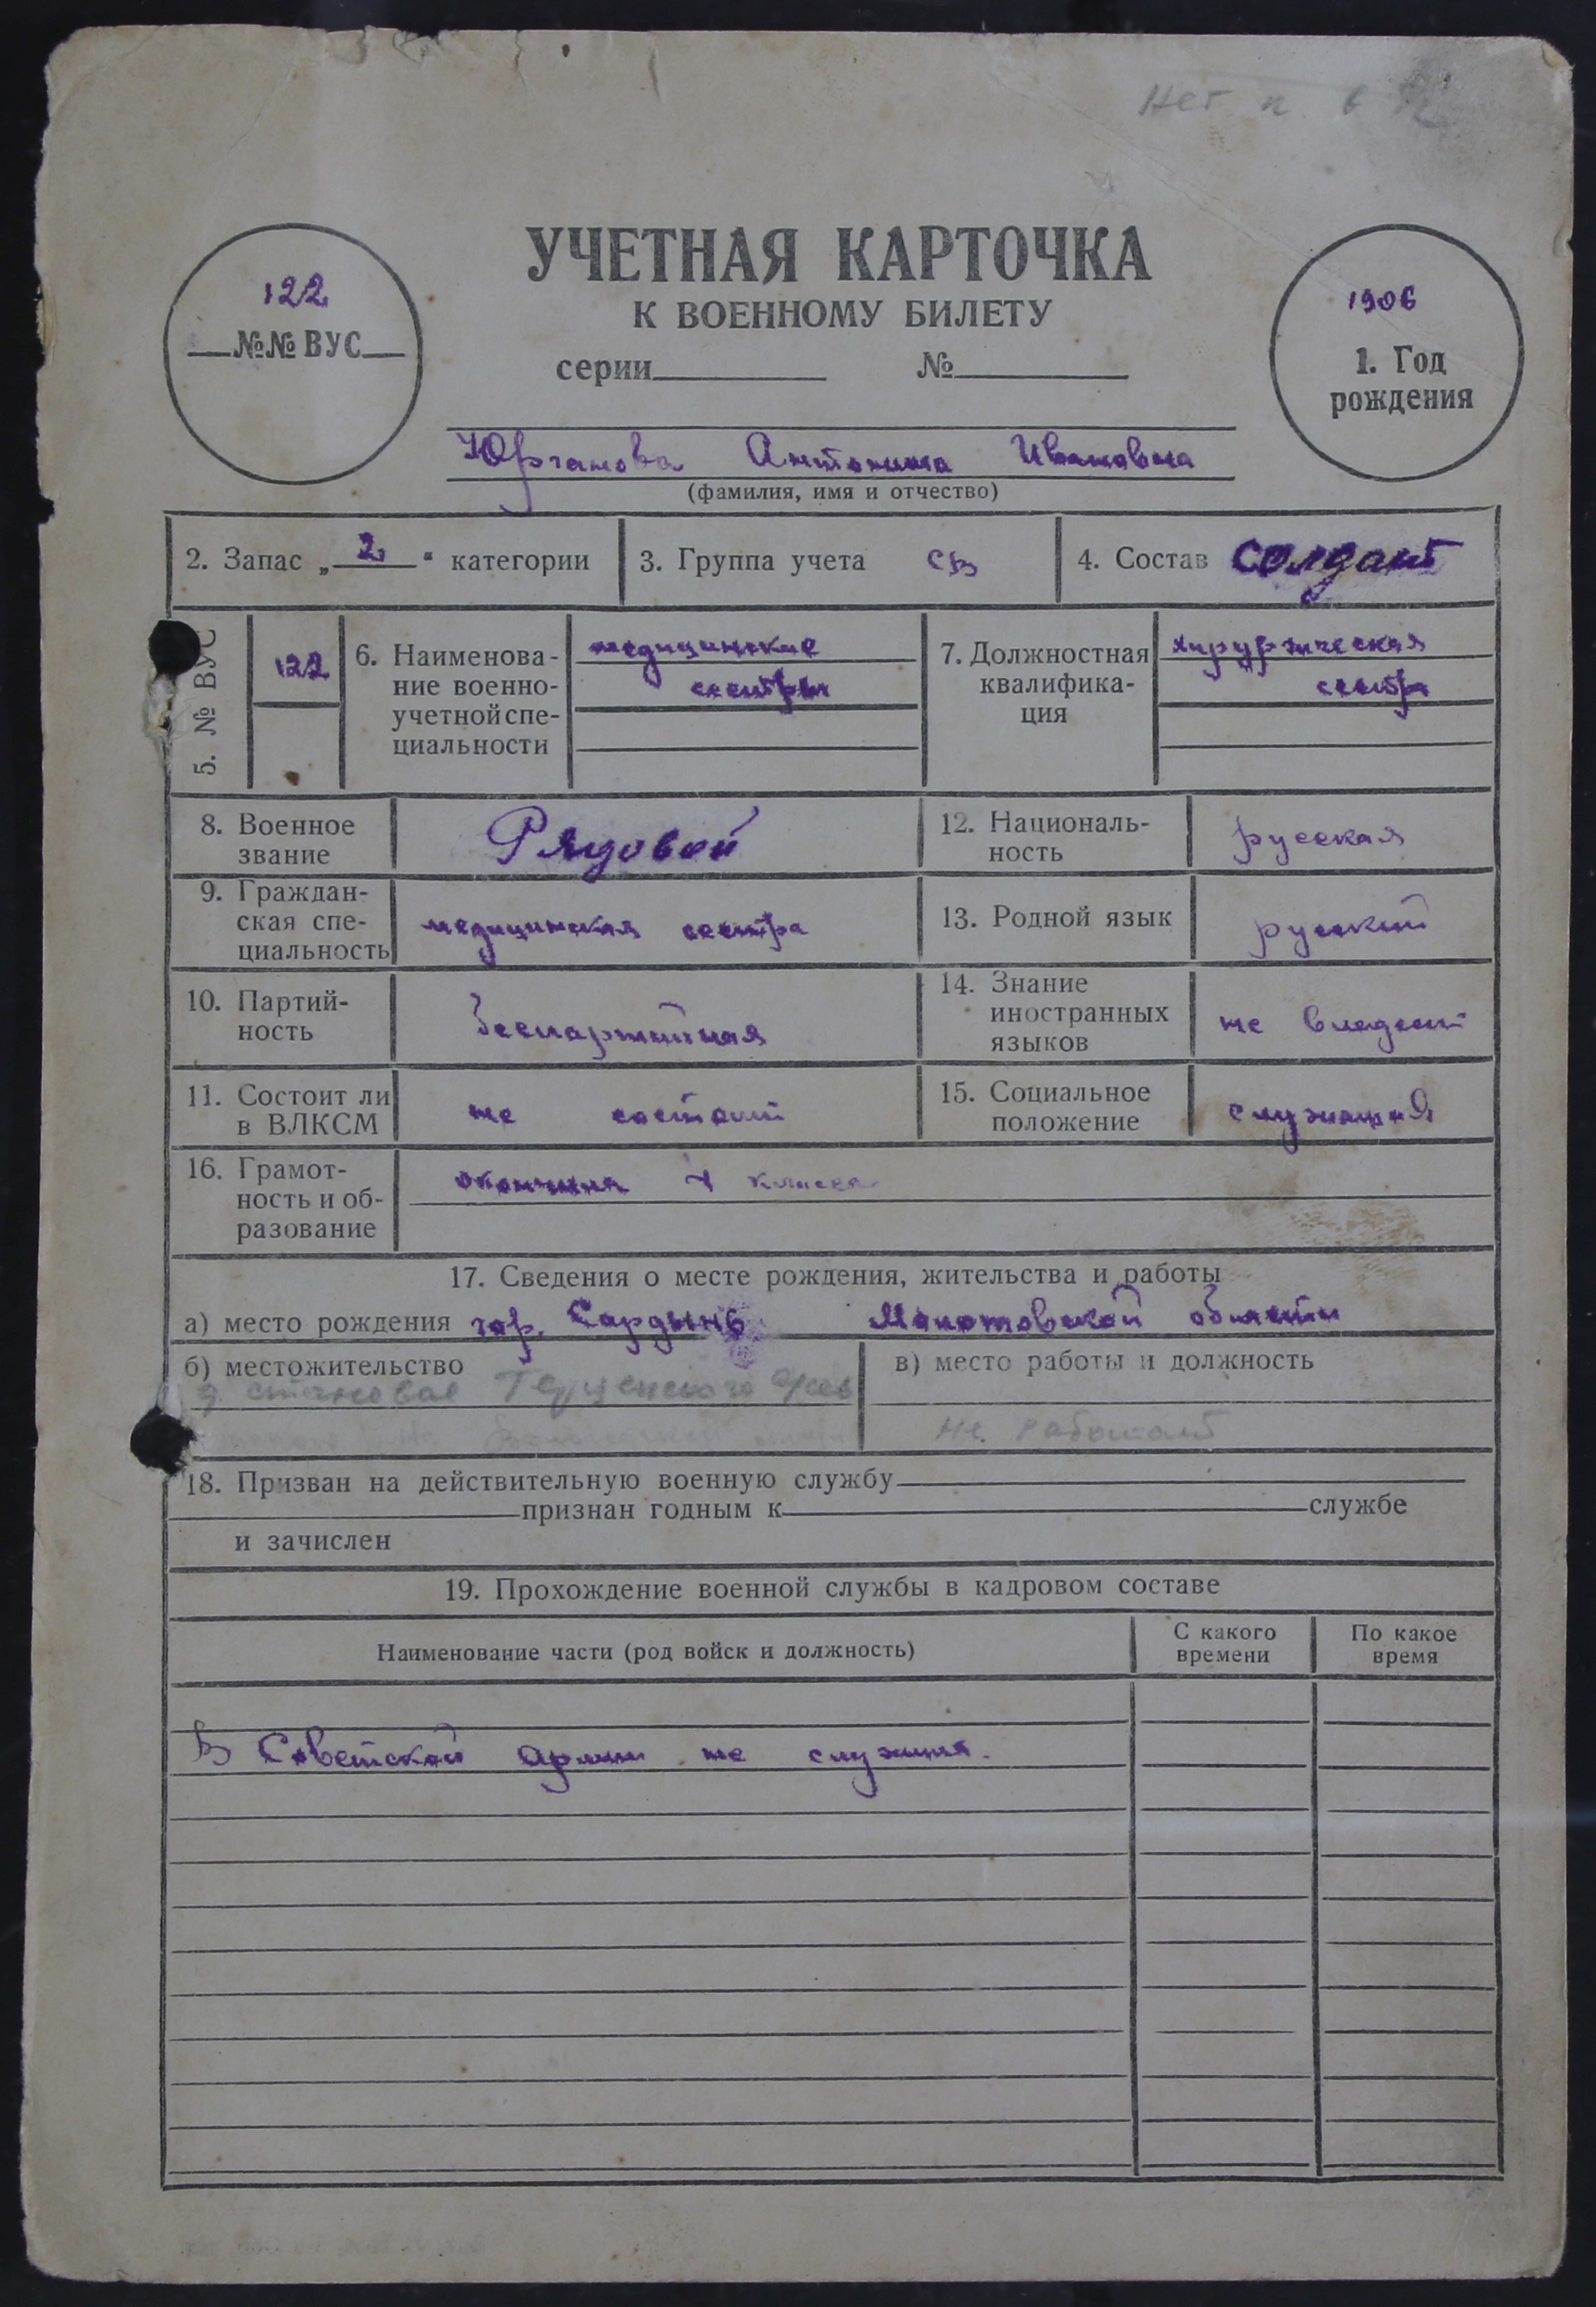 Нет
УЧЕТНАЯ КАРТОЧКА
К ВОЕННОМУ БИЛЕТУ
серии №
122
№№ ВУС
1906
1. Год
рождения
Юрганова Антонина Ивановна
(фамилия, имя и отчество)
2. Запас „ 2 “ категории
3. Группа учета СВ
4. Состав солдат
5. № ВУС
122
6. Наименова-
ние военно-
учетной спе-
циальности
медицинские
сестры
7. Должностная
квалифика-
ция
хирургическая
сестра
8. Военное
звание
Рядовой
12. Националь-
ность
русская
9. Граждан-
ская спе-
циальность
медицинская сестра
13. Родной язык
русский
10. Партий-
ность
беспартийная
14. Знание
иностранных
языков
не владеет
11. Состоит ли
в ВЛКСМ
не состоит
15. Социальное
положение
служащая
16. Грамот-
ность и об-
разование
окончила класса
17. Сведения о месте рождения, жительства и работы
а) место рождения гор. Сардынь области
б) местожительство
д. становое
в) место работы и должность
не работает
18. Призван на действительную военную службу
признан годным к службе
и зачислен
19. Прохождение военной службы в кадровом составе
Наименование части (род войск и должность)
С какого
времени
По какое
время
В Советской армии не служила.